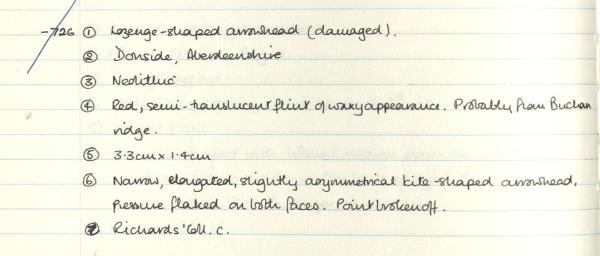 -726 ① Lozenge-shaped arrowhead (damaged).
② Donside, Aberdeenshire
③ Neolithic
④ Red, semi-translucent flint of waxy appearance. Probably from Buchan
ridge.
⑤ 3.3cm x 1.4cm
⑥ Narrow, elongated, slightly asymmetrical kite-shaped arrowhead,
pressure flaked on both faces. Point broken off.
⑦ Richards' Coll. c.